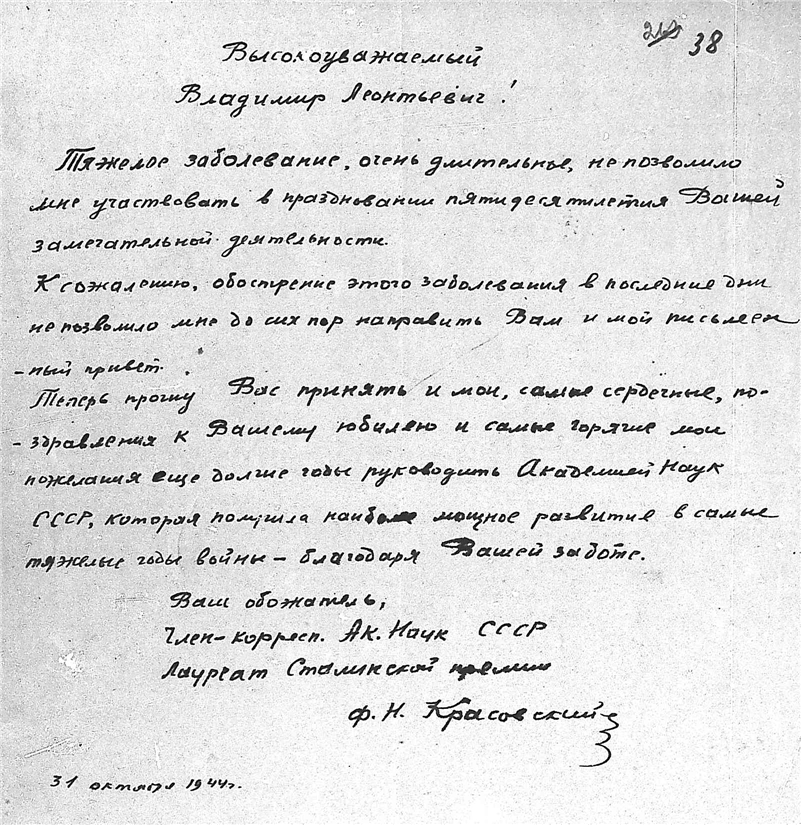 38
Высокоуважаемый
Владимир Леонтьевич!
Тяжелое заболевание, очень длительное, не позволило
мне участвовать в праздновании пятидесятилетия Вашей
замечательной деятельности.
К сожалению, обострение этого заболевания в последние дни
не позволило мне до сих пор направить Вам и мой письмен
-ный привет.
Теперь прошу Вас принять и мои, самые сердечные, по-
-здравления к Вашему юбилею и самые горячие мои
пожелания еще долгие годы руководить Академией Наук
СССР, которая получила наиболее мощное развитие в самые
тяжелые годы войны – благодаря Вашей заботе.
Ваш обожатель,
Член-корресп. Ак. Наук СССР
Лауреат Сталинской премии
Ф. Н. Красовский
31 октября 1944г.